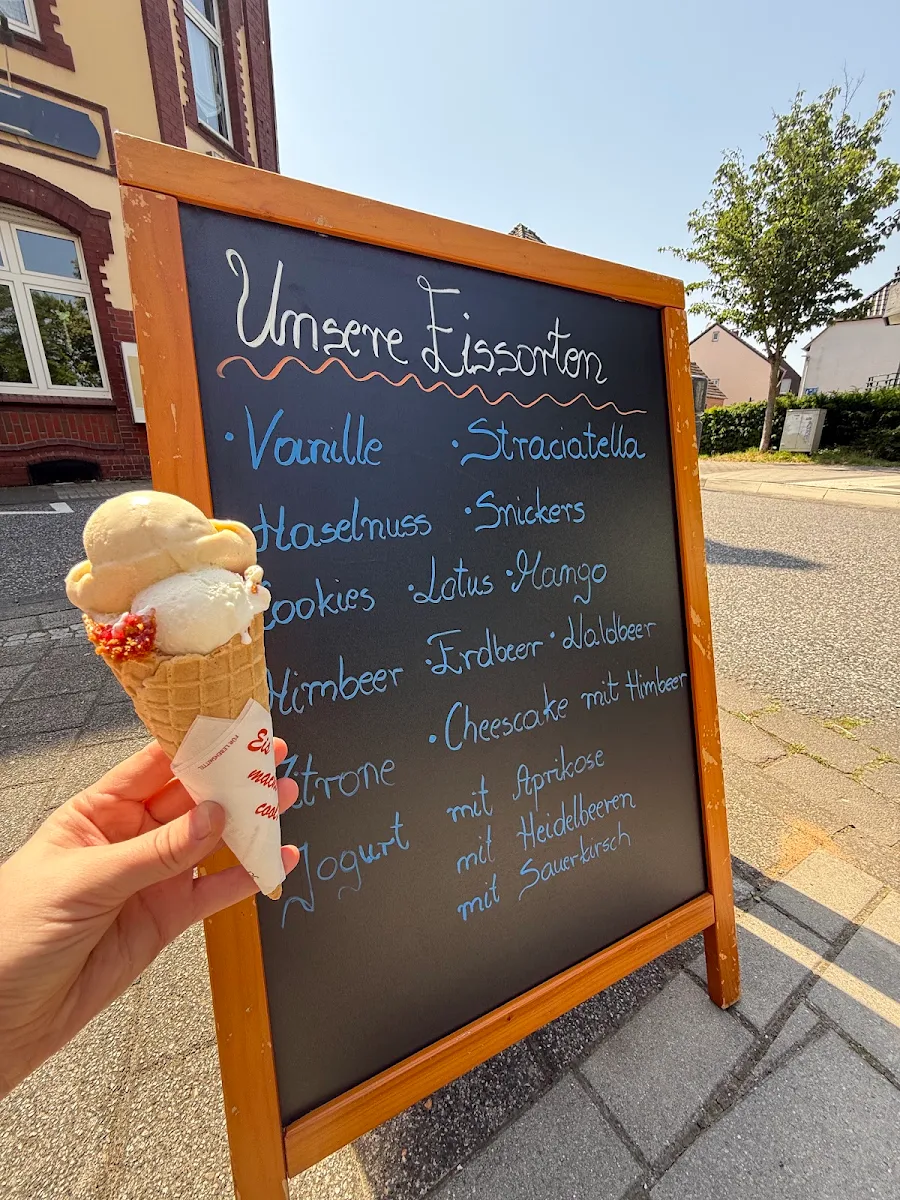 Unsere Eissorten
• Vanille • Straciatella
Haselnuss • Snickers
Cookies • Lotus • Mango
Himbeer • Erdbeer • Waldbeer
• Cheescake mit Himbeer
Zitrone
mit Aprikose
Jogurt mit Heidelbeeren
mit Sauerkirsch
Eis
macht
cool